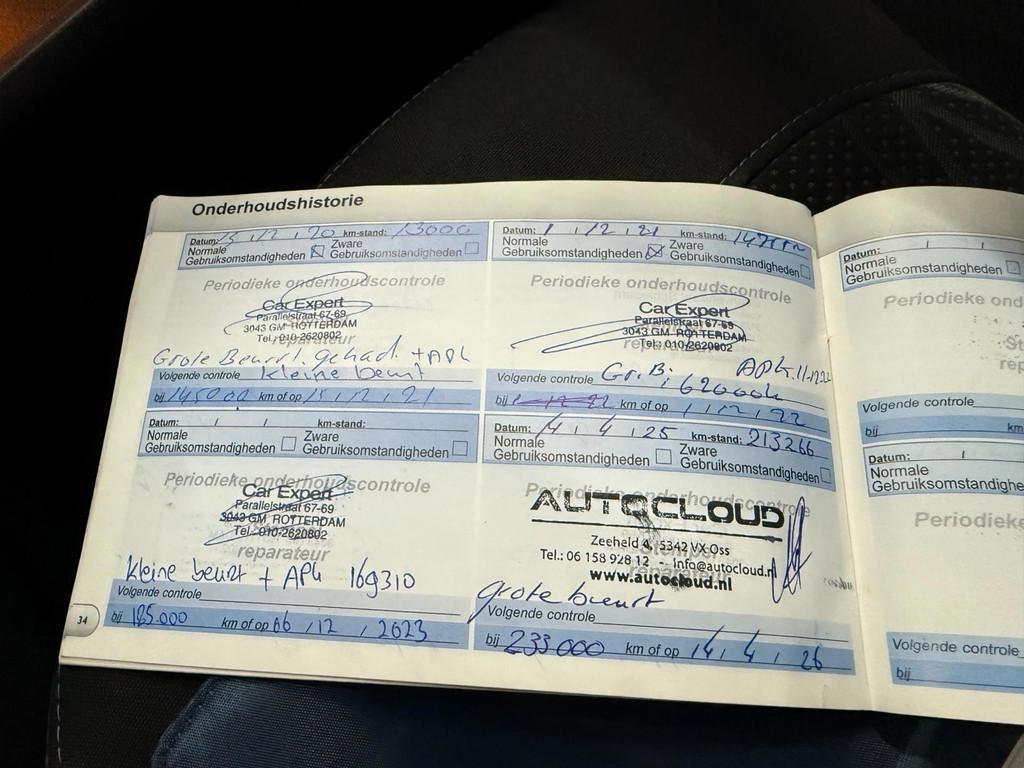 Onderhoudshistorie
Datum: 15 / 12 / 20 km-stand:
Normale Gebruiksomstandigheden ☒ Zware Gebruiksomstandigheden ☐
Periodieke onderhoudscontrole
Car Expert
Parallelstraat 67-69
3043 GM ROTTERDAM
Tel.: 010-2620802
reparateur
Grote Beurt. gehad. + APK
Volgende controle kleine beurt
bij 145000 km of op 15 / 12 / 21
Datum: / / km-stand:
Normale Gebruiksomstandigheden ☐ Zware Gebruiksomstandigheden ☐
Periodieke onderhoudscontrole
Car Expert
Parallelstraat 67-69
3043 GM ROTTERDAM
Tel.: 010-2620802
reparateur
kleine beurt + APK 169310
Volgende controle
bij 185.000 km of op 06 / 12 / 2023
34
Datum: 1 / 12 / 21 km-stand:
Normale Gebruiksomstandigheden ☒ Zware Gebruiksomstandigheden ☐
Periodieke onderhoudscontrole
Car Expert
Parallelstraat 67-69
3043 GM ROTTERDAM
Tel.: 010-2620802
reparateur
Volgende controle Gr. B. APK
bij km of op 1 / 12 / 22
Datum: 14 / 4 / 25 km-stand: 213266
Normale Gebruiksomstandigheden ☐ Zware Gebruiksomstandigheden ☐
Periodieke onderhoudscontrole
AUTOCLOUD
Zeeheld 4, 5342 VX Oss
Tel.: 06 158 928 12 - Info@autocloud.nl
www.autocloud.nl
Stempel
reparateur
grote beurt
Volgende controle
bij 233.000 km of op 14 / 4 / 26
Datum: / /
Normale
Gebruiksomstandigheden ☐
Periodieke ond
St
rep
Volgende controle
bij km
Datum: /
Normale
Gebruiksomstandighe
Periodiek
Volgende controle
bij